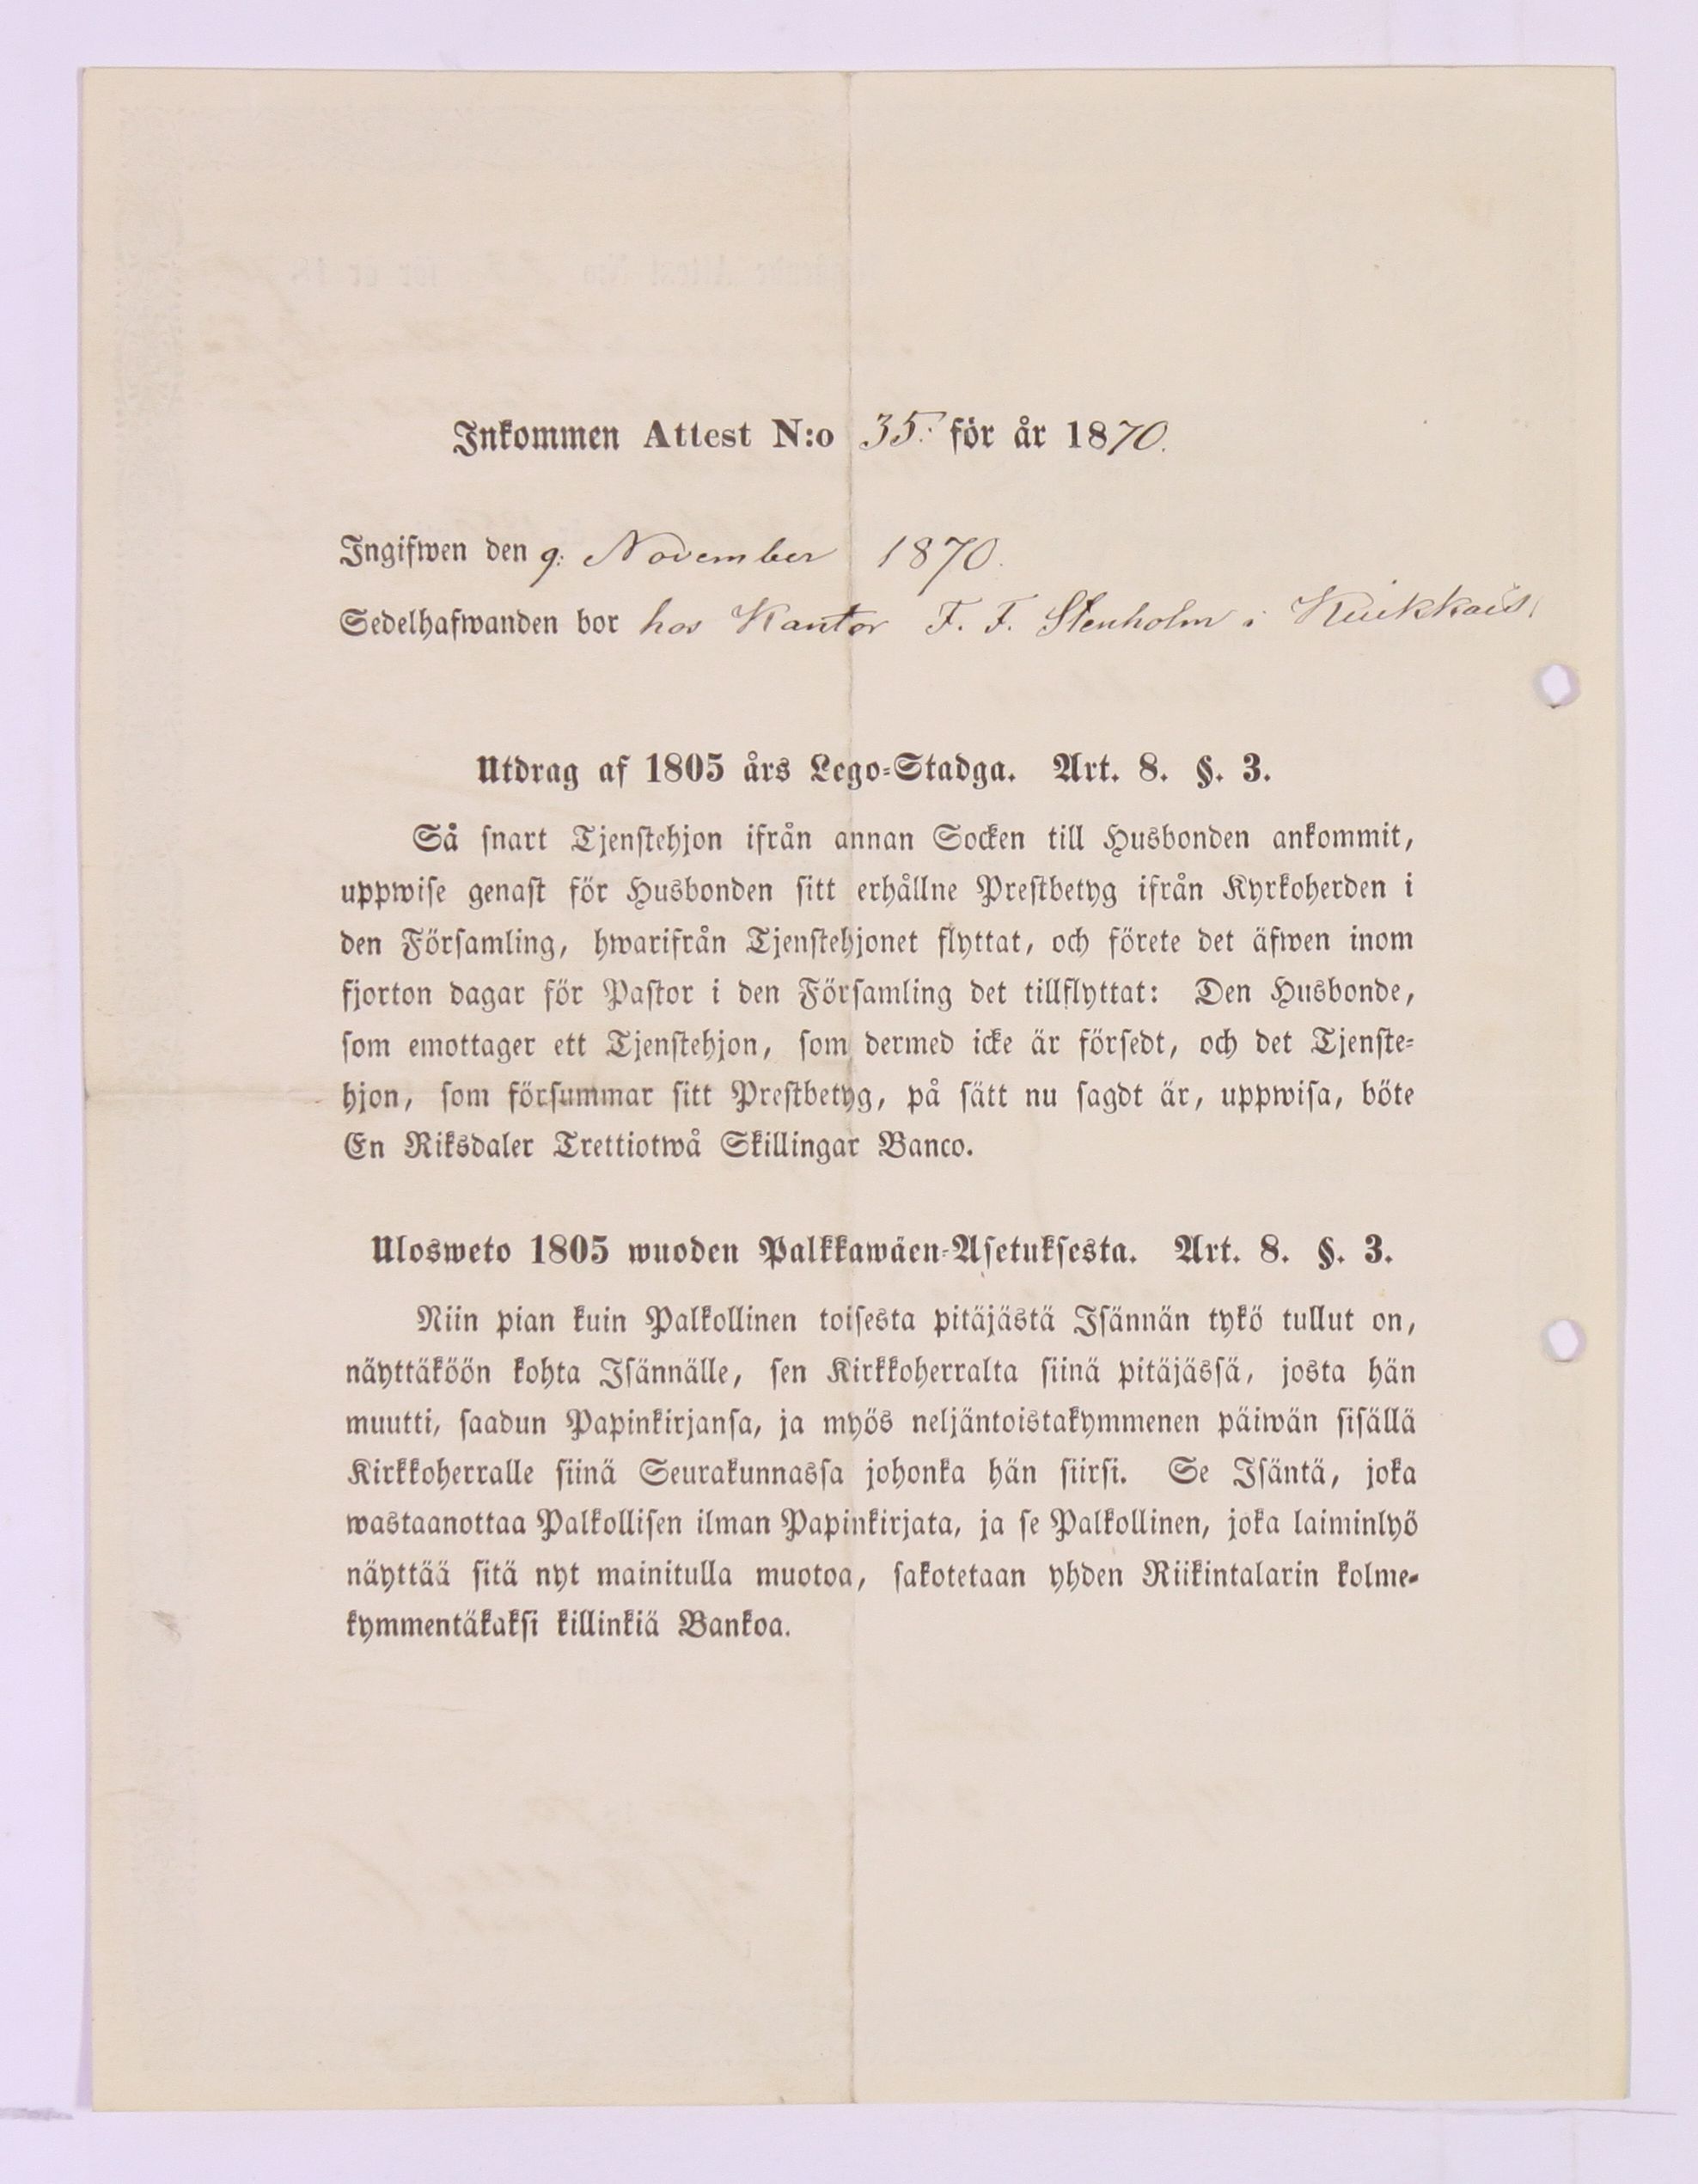 Inkommen Attest N:o 35. för år 1870.
Ingifwen den 9. November 1870.
Sedelhafwanden bor hos Kantor F. F. Stenholm i
Utdrag af 1805 års Lego-Stadga. Art. 8. §. 3.
Så snart Tjenstehjon ifrån annan Socken till Husbonden ankommit,
uppwise genast för Husbonden sitt erhållne Prestbetyg ifrån Kyrkoherden i
den Församling, hwarifrån Tjenstehjonet flyttat, och förete det äfwen inom
fjorton dagar för Pastor i den Församling det tillflyttat: Den Husbonde,
som emottager ett Tjenstehjon, som dermed icke är försedt, och det Tjenste-
hjon, som försummar sitt Prestbetyg, på sätt nu sagdt är, uppwisa, böte
En Riksdaler Trettiotwå Skillingar Banco.
Ulosweto 1805 wuoden Palkkawäen-Asetuksesta. Art. 8. §. 3.
Niin pian kuin Palkollinen toisesta pitäjästä Isännän tykö tullut on,
näyttäköön kohta Isännälle, sen Kirkkoherralta siinä pitäjässä, josta hän
muutti, saadun Papinkirjansa, ja myös neljäntoistakymmenen päiwän sisällä
Kirkkoherralle siinä Seurakunnassa johonka hän siirsi. Se Isäntä, joka
wastaanottaa Palkollisen ilman Papinkirjata, ja se Palkollinen, joka laiminlyö
näyttää sitä nyt mainitulla muotoa, sakotetaan yhden Riikintalarin kolme-
kymmentäkaksi killinkiä Bankoa.